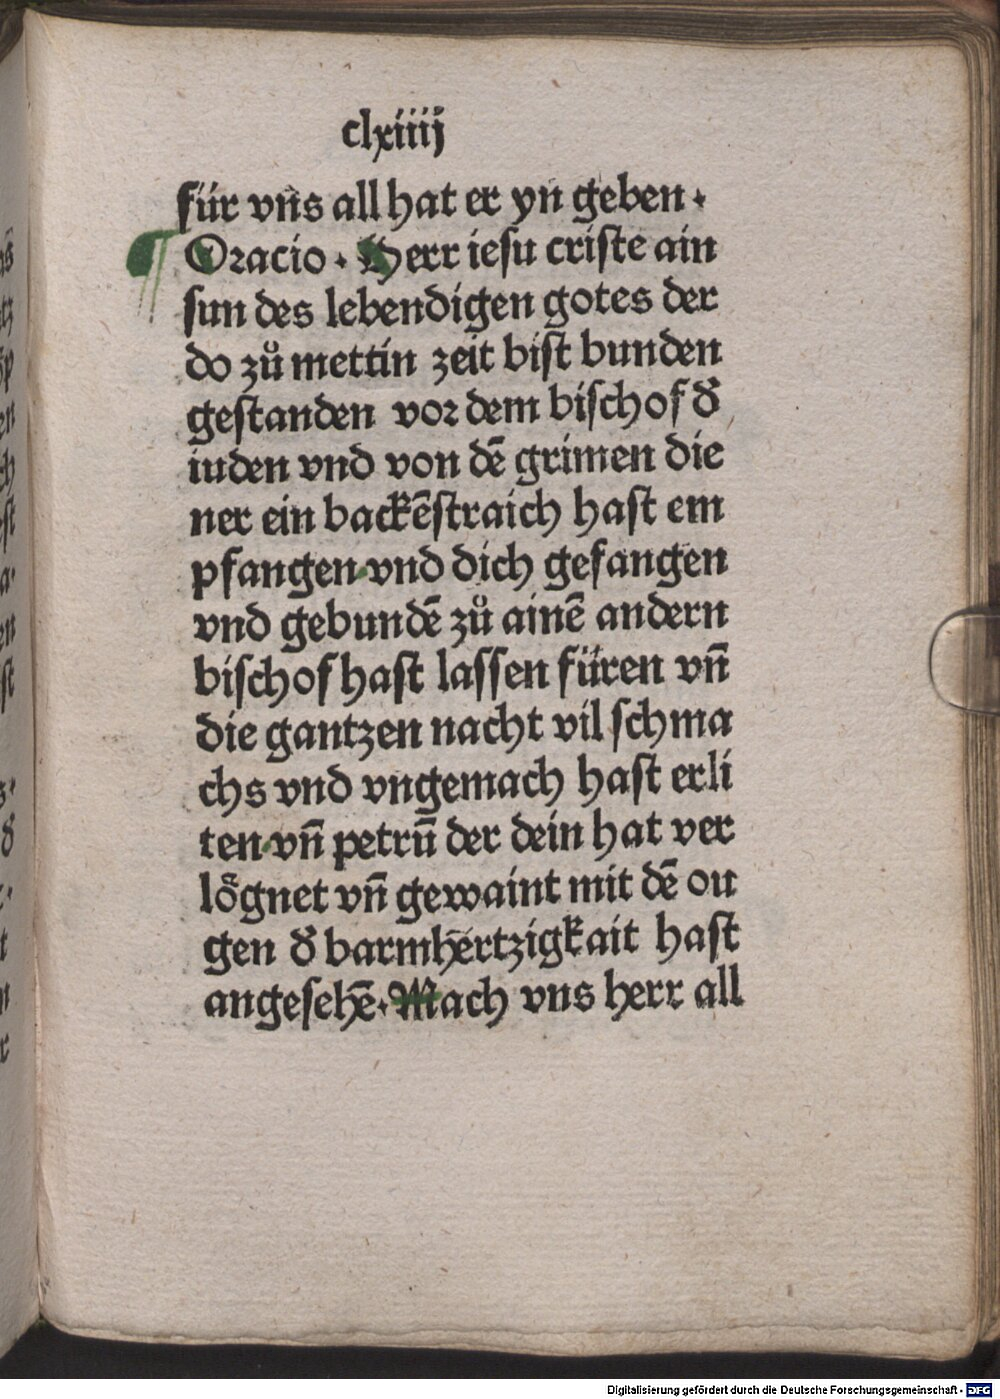 clxiiij
für vn̄s all hat er yn geben ·
¶ Oꝛacio · Herr iesu criste ain
sun des lebendigen gotes der
do zů mettin zeit bist bunden
gestanden voꝛ dem bischof d̕
iuden vnd von dē grimen die
ner ein backēstraich hast em
pfangen·vnd dich gefangen
vnd gebundē zů ainē andern
bischof hast lassen füren vn̄
die gantzen nacht vil schma
chs vnd vngemach hast erli
ten·vn̄ petrū der dein hat ver
lo̊gnet vn̄ gewaint mit dē ou
gen d̕ barmhertzigkait hast
angesehē·Mach vns herr all
Digitalisierung gefördert durch die Deutsche Forschungsgemeinschaft - DFG